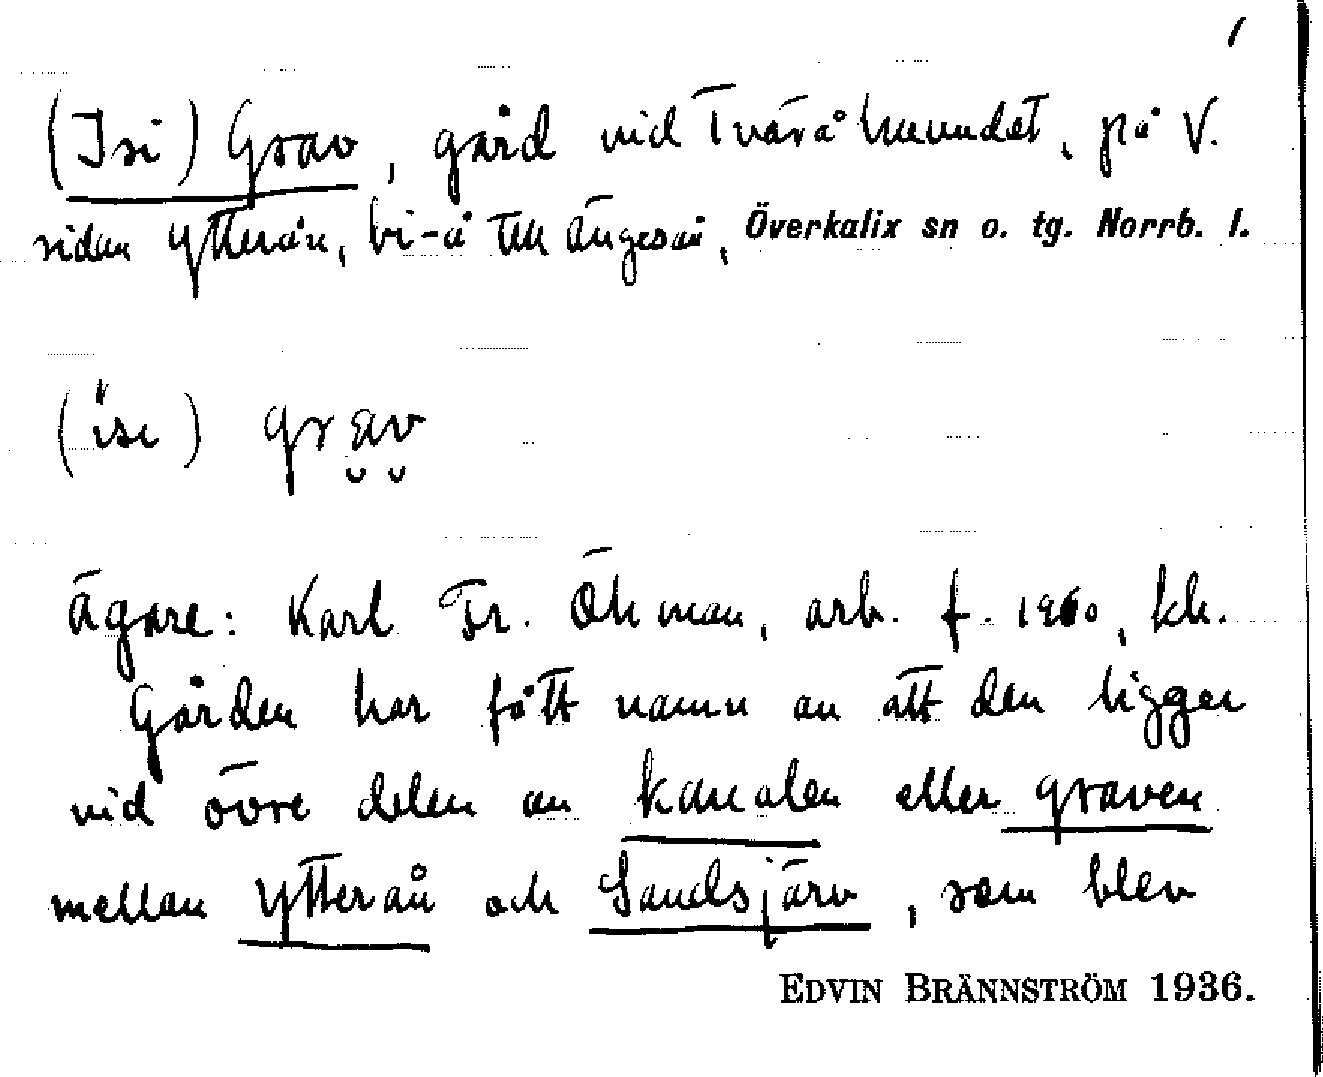 1
(Isi) Grav, gård vid Tvärå huvudet, på V.
sidan Ytterån, bi-å till Ängesån, Överkalix sn o. tg. Norrb. l.
(isi) grav
Ägare: Karl Fr. Öhman, arb. f. kh.
Gården har fått namn av att den ligger
vid övre delen av kanalen eller graven
mellan Ytterån och Sandsjärv, som blev
EDVIN BRÄNNSTRÖM 1936.